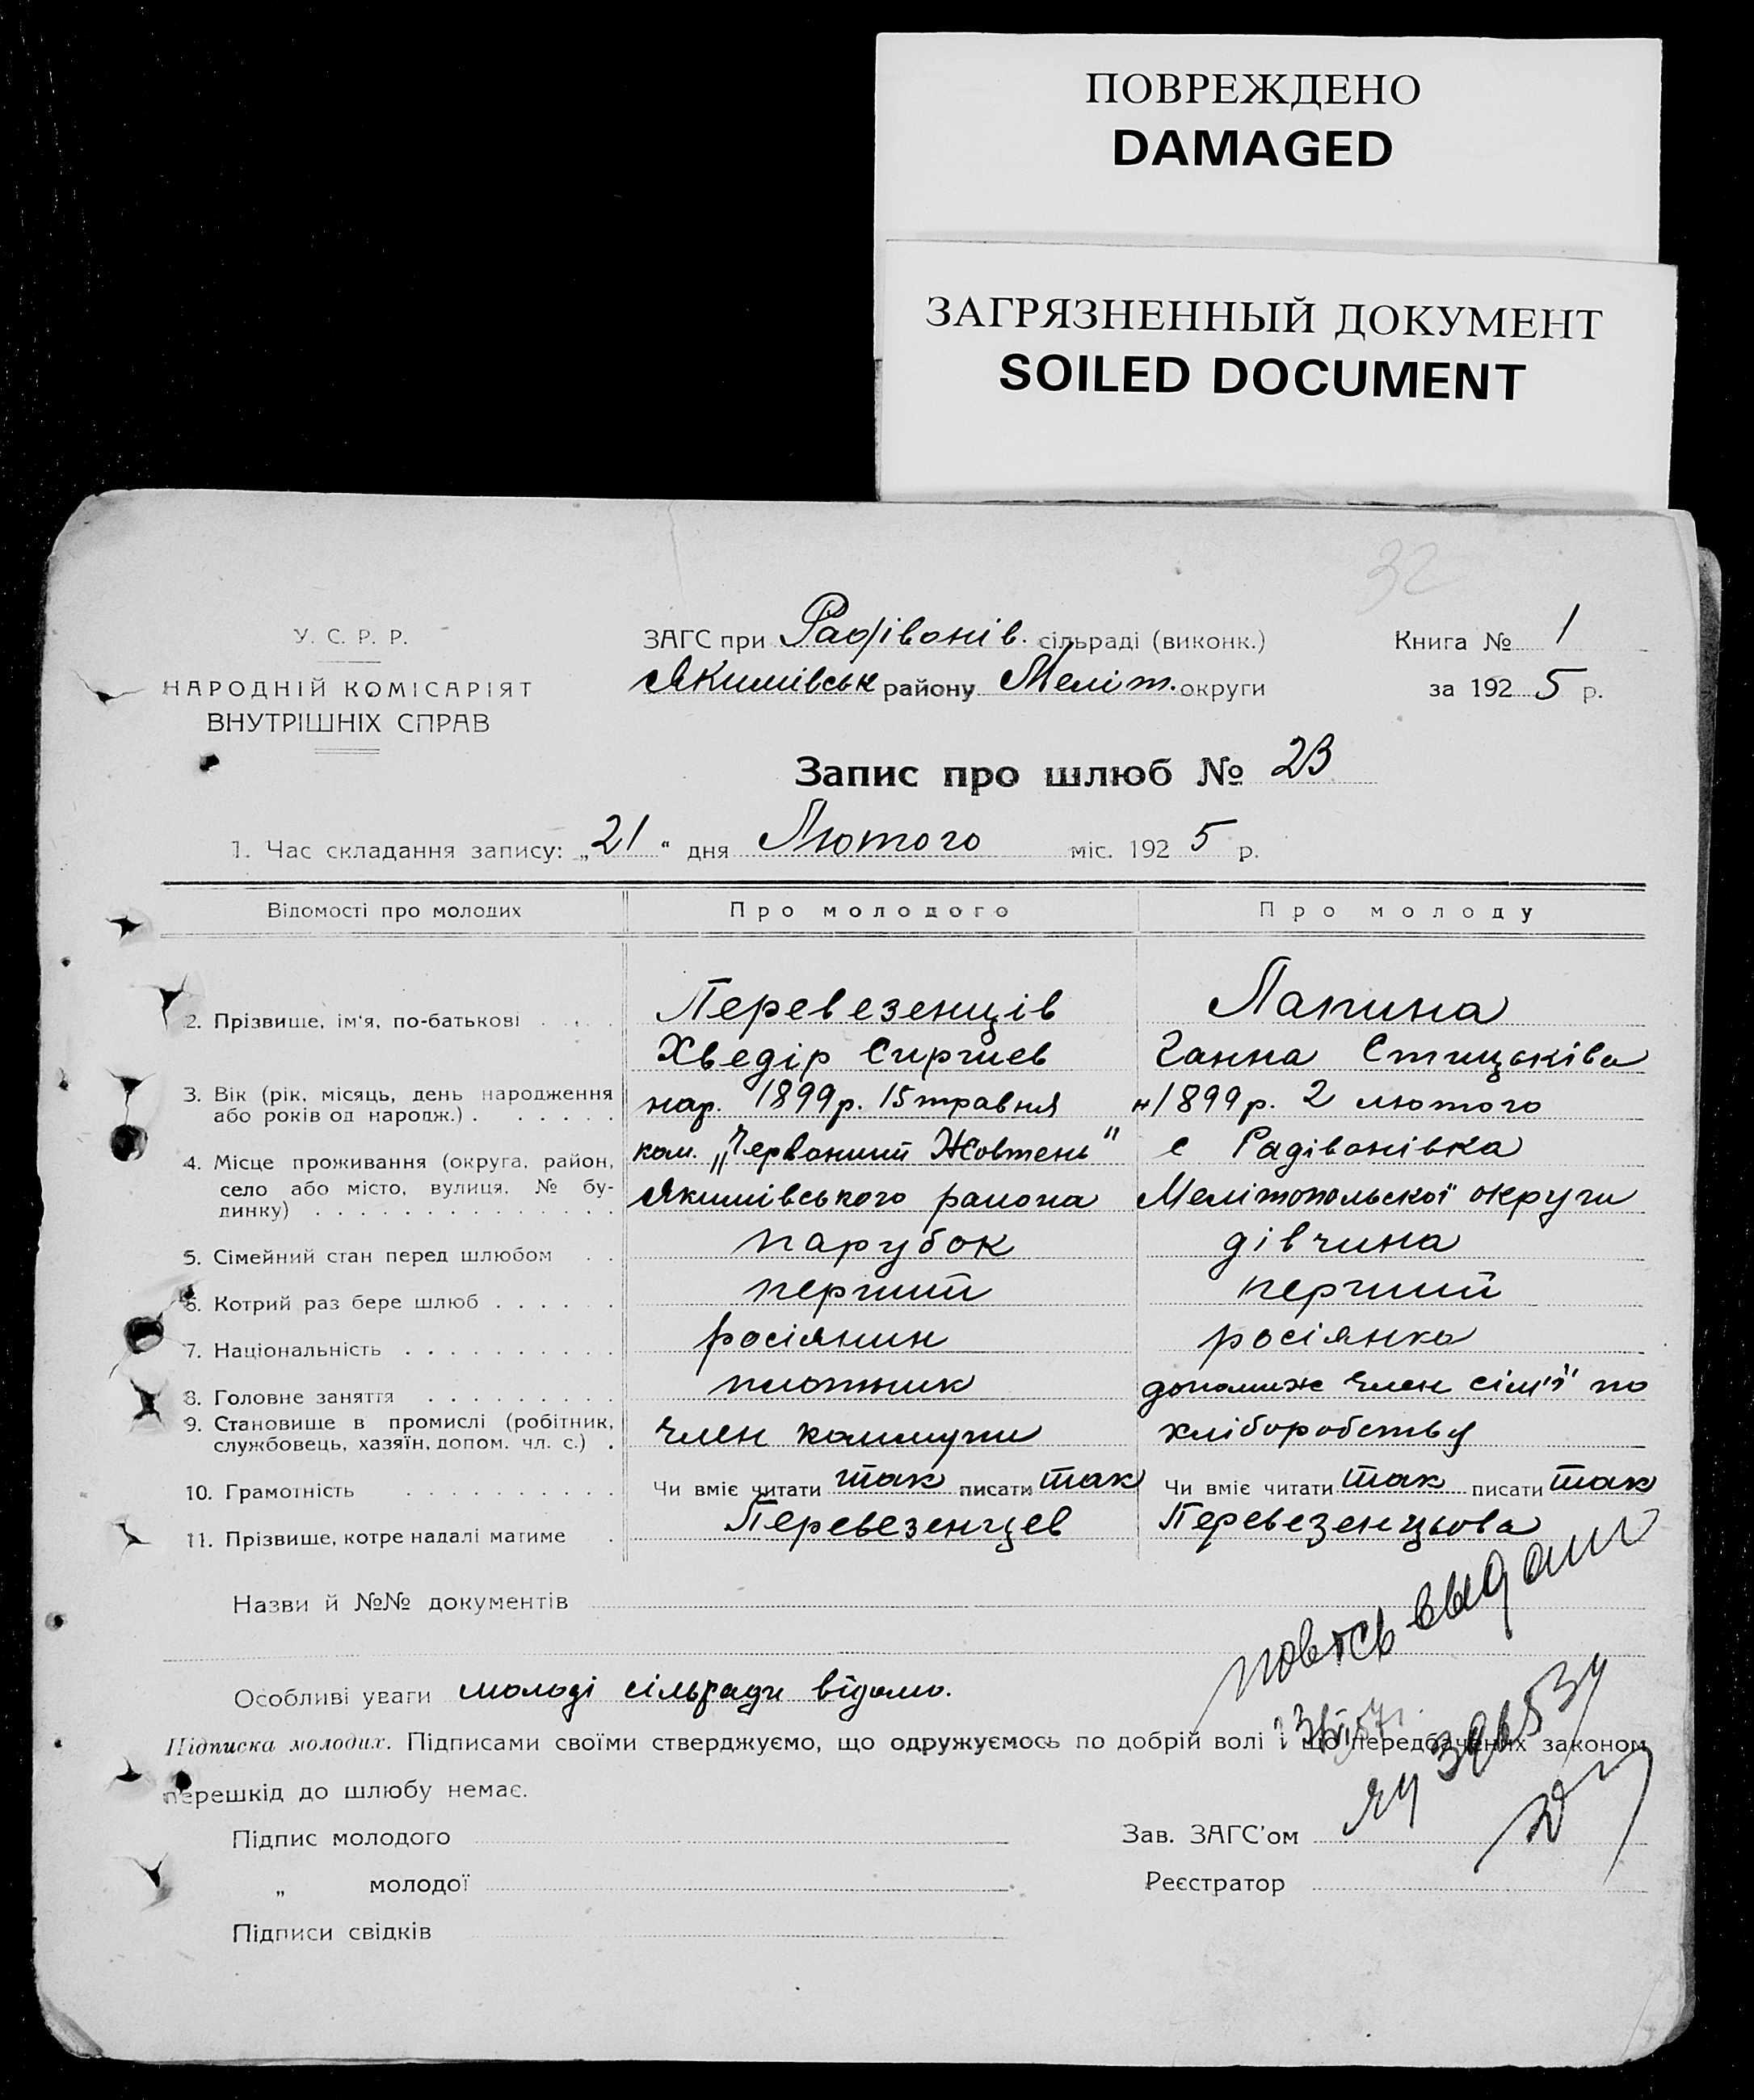 ПОВРЕЖДЕНО
DAMAGED
ЗАГРЯЗНЕННЫЙ ДОКУМЕНТ
SOILED DOCUMENT
32
У. С. Р. Р.
НАРОДНІЙ КОМІСАРІЯТ
ВНУТРІШНІХ СПРАВ
ЗАГС при Радівонів. сільраді (виконк.)
Якимівськ району Меліт. округи
Книга № 1
за 1925 р.
Запис про шлюб № 23
1. Час складання запису: „21“ дня Лютого міс. 1925 р.
Відомості про молодих Про молодого Про молоду
2. Прізвище, ім'я, по-батькові . . . Перевезенців Лапина
Хведір Сиргиев Ганна
3. Вік (рік, місяць, день народження нар. 1899 р. 15 травня н 1899 р. 2 лютого
або років од народж.) . . . . . .
4. Місце проживання (округа, район, ком. „Червоний Жовтень“ с Радівонівка
село або місто, вулиця, № бу- Якимівського района Мелітопольскої округи
динку) . . . . . . . . . . . . . .
5. Сімейний стан перед шлюбом . . парубок дівчина
6. Котрий раз бере шлюб . . . . . . перший перший
7. Національність . . . . . . . . . . росіянин росіянка
8. Головне заняття . . . . . . . . . плотник допомиж член сім'ї по
9. Становище в промислі (робітник, член коммуни хліборобству
службовець, хазяїн, допом. чл. с.) .
10. Грамотність . . . . . . . . . . Чи вміє читати так писати так Чи вміє читати так писати так
11. Прізвище, котре надалі матиме . Перевезенцев Перевезенцьова
Назви й №№ документів
выдано
Особливі уваги молоді сільради відомо.
Підписка молодих. Підписами своїми стверджуємо, що одружуємось по добрій волі і що передбачених законом
перешкід до шлюбу немає.
Підпис молодого Зав. ЗАГС'ом
„ молодої Реєстратор
Підписи свідків